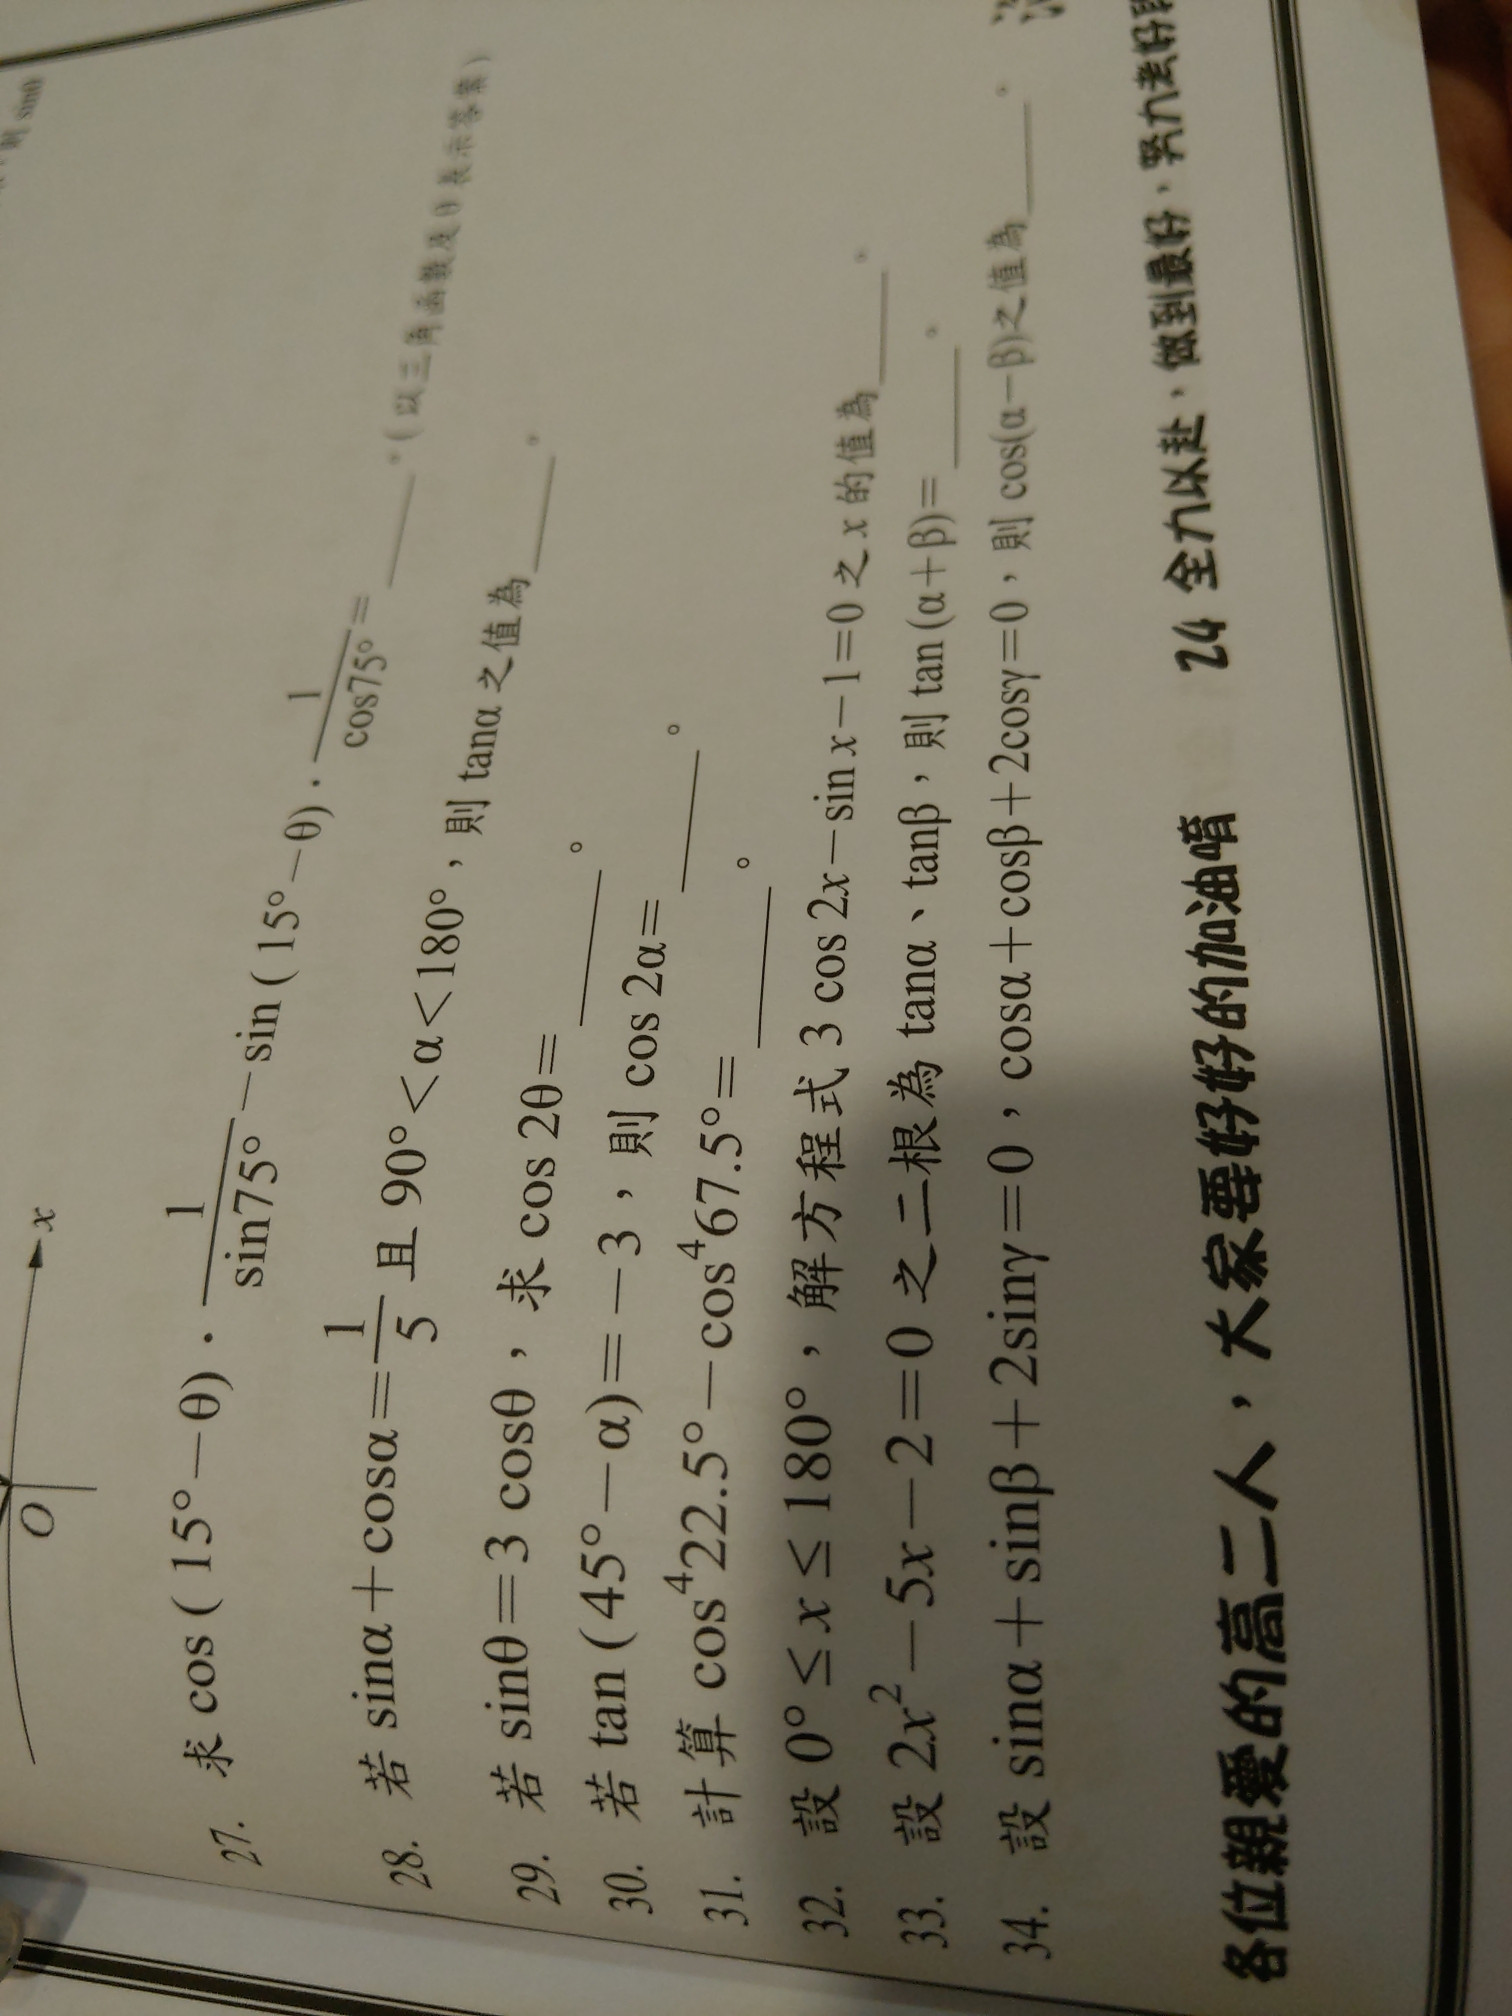 則 sinθ
x
O
27. 求 cos(15°−θ)·1/sin75°−sin(15°−θ)·1/cos75°=____。(以三角函數及θ表示答案)
28. 若 sinα+cosα=1/5 且 90°<α<180°，則 tanα 之值為____。
29. 若 sinθ=3 cosθ，求 cos 2θ=____。
30. 若 tan(45°−α)=−3，則 cos 2α=____。
31. 計算 cos⁴22.5°−cos⁴67.5°=____。
32. 設 0°≤x≤180°，解方程式 3 cos 2x−sin x−1=0 之 x 的值為____。
33. 設 2x²−5x−2=0 之二根為 tanα、tanβ，則 tan(α+β)=____。
34. 設 sinα+sinβ+2sinγ=0，cosα+cosβ+2cosγ=0，則 cos(α−β)之值為____。
各位親愛的高二人，大家要好好的加油唷 24 全力以赴，做到最好，努力考好